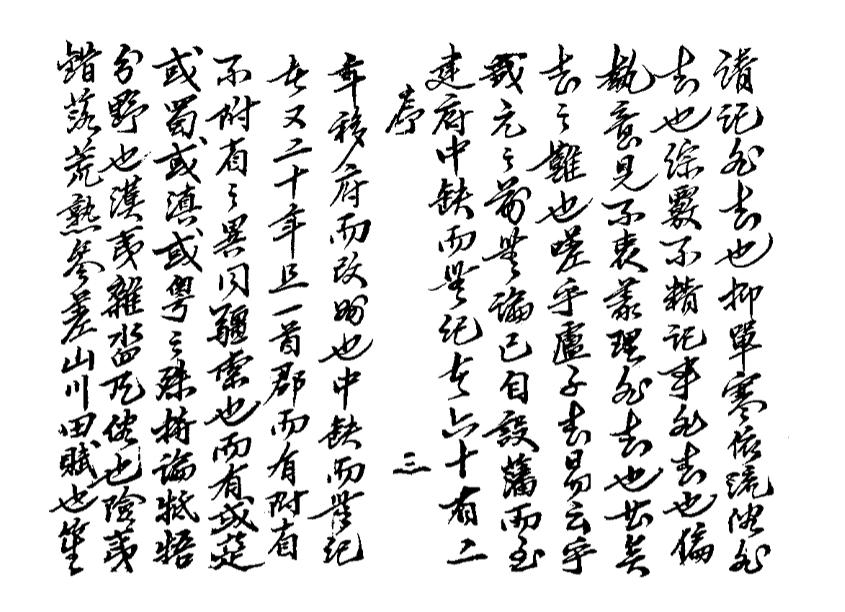 記非志也抑單寒依陋非
志也綜覈不精記事非志也偏
執意見不衷理非志也甚矣
志之難也嗟乎盧子志易云乎
哉元之前無論已自設藩而至
建府中缺而無紀者六十有二
序 三
年移府而改州也中缺而無紀
者又二十年且一首郡而有附有
不附有之異同疆索也而有或楚
或蜀或滇或粵之殊特論牴牾
分野也漢夷雜沓俗也險夷
錯落荒熟參差山川田賦也